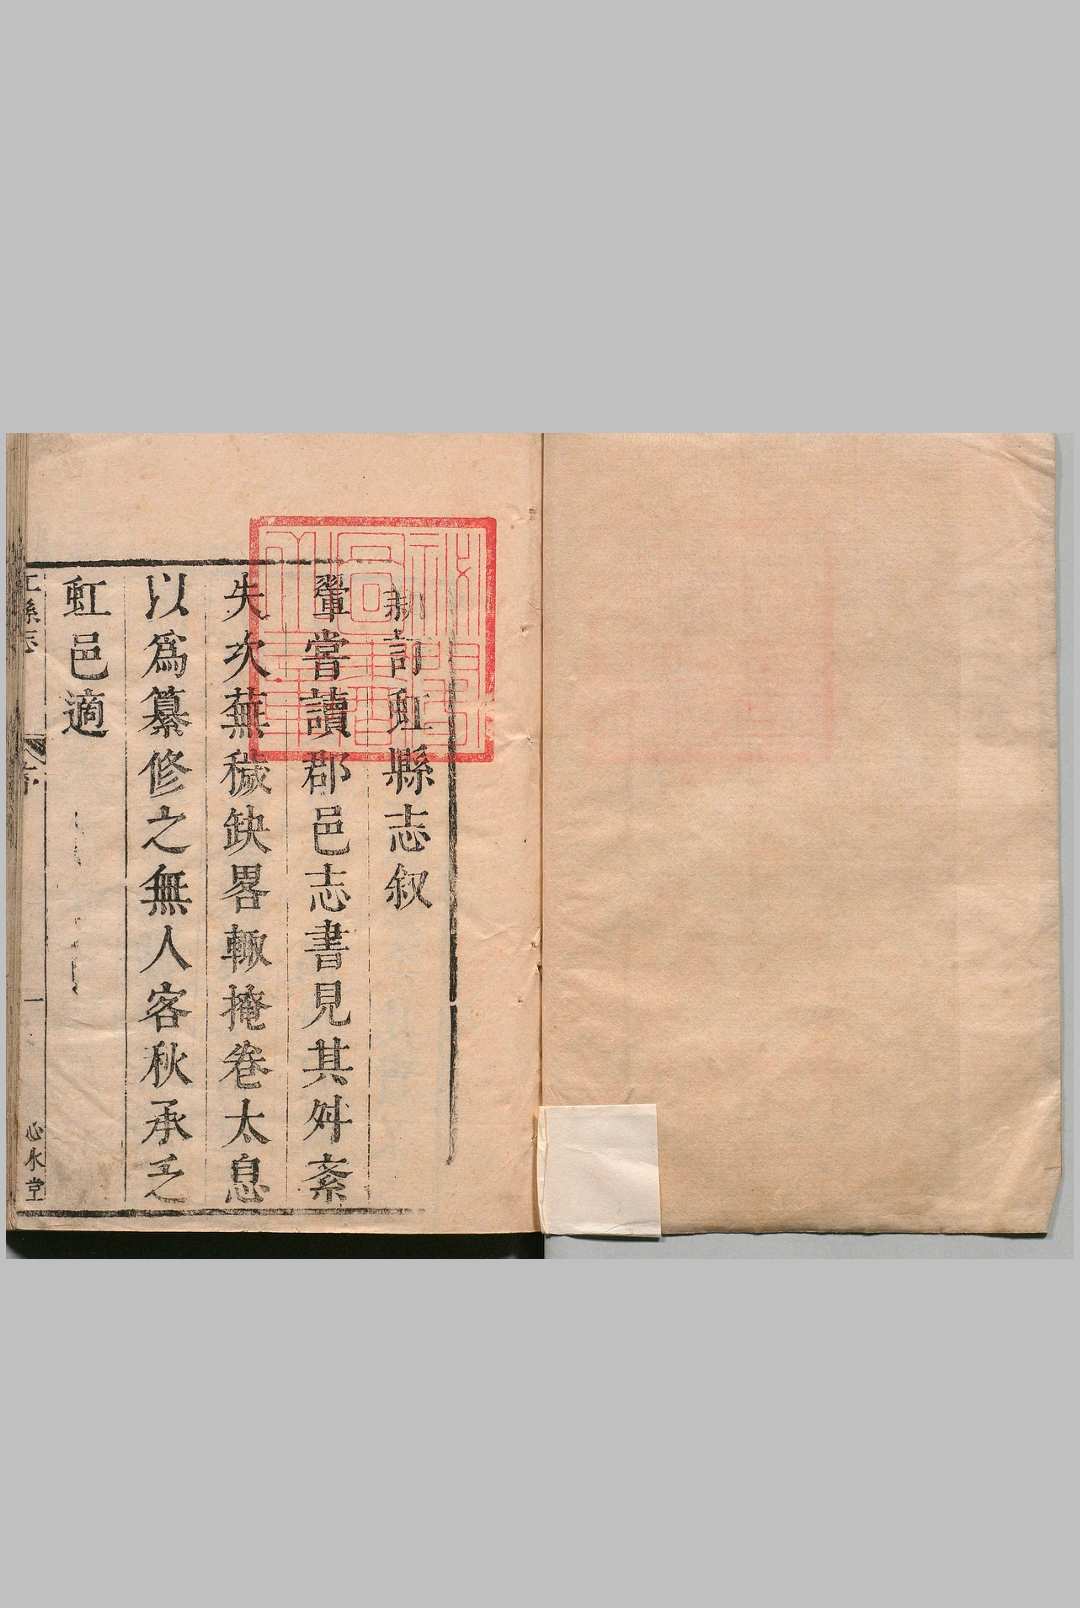 新訂虹縣志叙
鞏嘗讀郡邑志書見其舛紊
失次蕪穢缺畧輙掩卷太息
以爲纂修之無人客秋承乏
虹邑適
虹縣志
序
一
心水堂